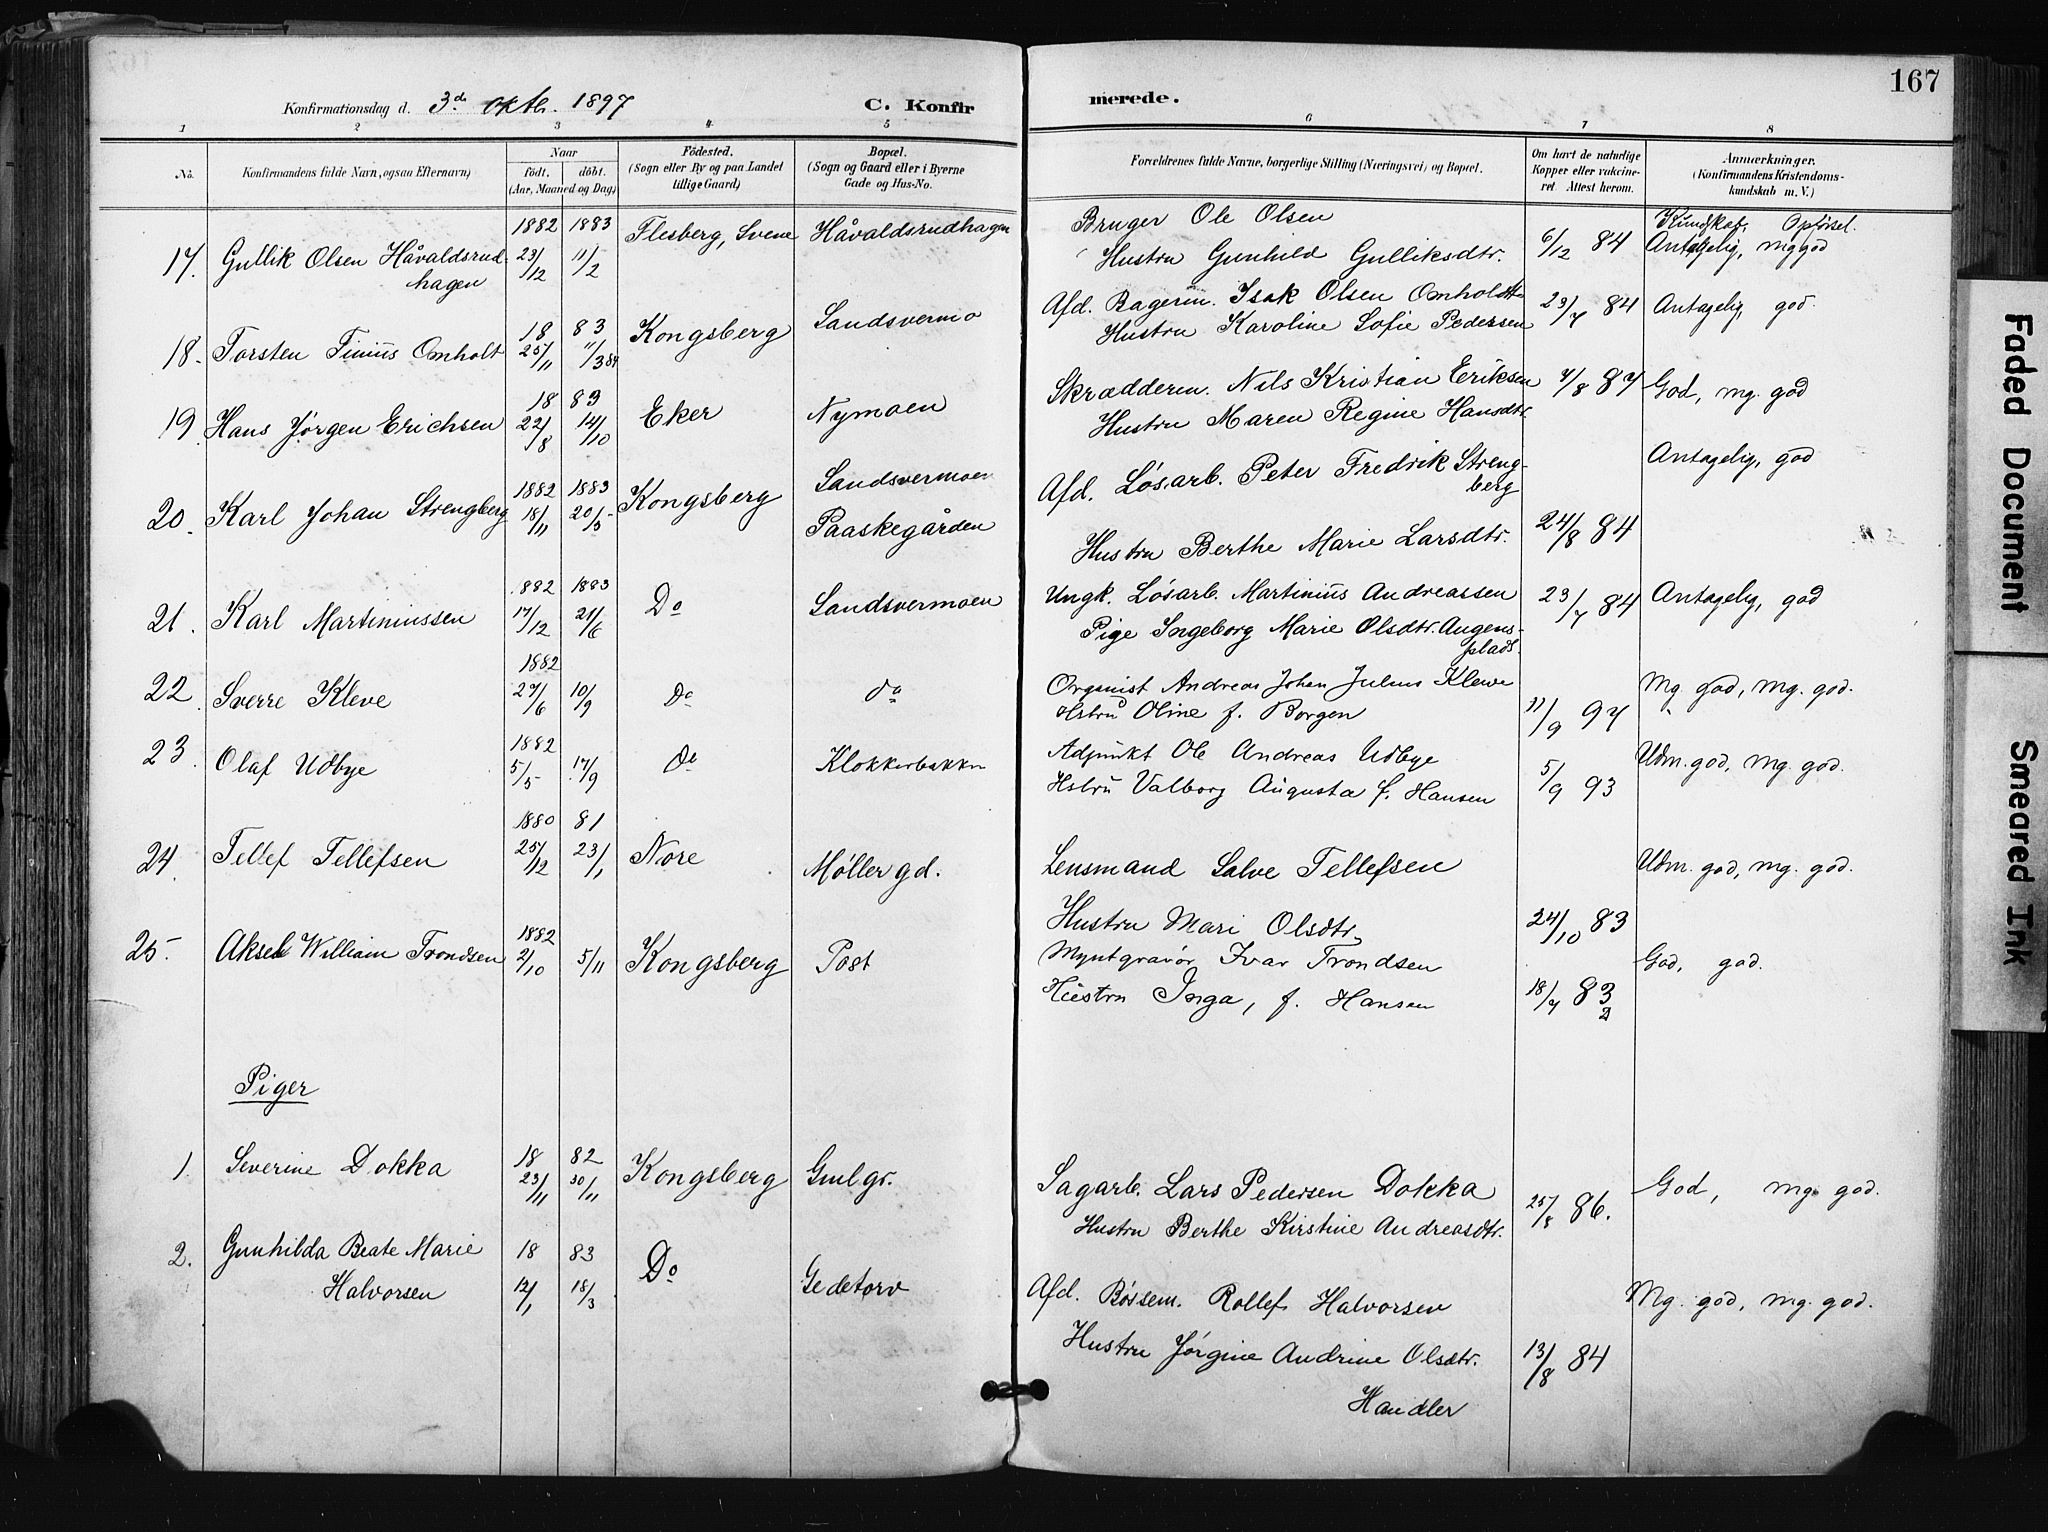 167
Konfirmationsdag d. 3d oktb. 1897
C. Konfirmerede.
1 2 3 4 5 6 7 8
No.
Konfirmandens fulde Navn, ogsaa Efternavn)
Naar
födt. döbt.
(Aar, Maaned og Dag)
Födested.
(Sogn eller By og paa Landet
tillige Gaard)
Bopæl.
(Sogn og Gaard eller i Byerne
Gade og Hus-No.
Forældrenes fulde Navne, borgerlige Stilling (Næringsvei) og Bopæl.
Om havt de naturlige
Kopper eller vakcine-
ret Attest herom.
Anmærkninger.
(Konfirmandens Kristendoms-
kundskab m. V.)
Kundskab, Opførsel.
17. Gullik Olsen Håvaldsrud-
hagen
1882 23/12 1883 11/2
Flesberg, Svene
Håvaldsrudhagen
Bruger Ole Olsen
Hustru Gunhild Gulliksdtr.
6/12 84
Antagelig, mg god
18. Torsten Finius Omholt
18 83 25/11 11/3 84
Kongsberg
Sandsvermo
Afd. Bagerm. Isak Olsen Omholdt
Hustru Karoline Sofie Pedersen
23/7 84
Antagelig, god.
19. Hans Jørgen Erichsen
18 83 22/8 14/10
Eker
Nymoen
Skrædderm. Nils Kristian Eriksen
Hustru Maren Regine Hansdtr.
4/8 87
God, mg. god
20. Karl Johan Strengberg
1882 18/11 1883 20/5
Kongsberg
Sandsvermoen
Paaskegården
Afd. Løsarb. Peter Fredrik Streng-
berg
Hustru Berthe Marie Larsdtr.
24/8 84
Antagelig, god
21. Karl Martiniussen
1882 17/12 1883 21/6
Do
Sandsvermoen
Ungk. Løsarb. Martinius Andreassen
Pige Ingeborg Marie Olsdtr. Augens-
plads.
23/7 84
Antagelig, god
22. Sverre Kleve
1882 27/6 10/9
Do
do
Organist Andreas Johan Julius Klewe
Hstru Oline f. Borgen
11/9 97
Mg. god, mg. god.
23. Olaf Udbye
1882 5/5 17/9
Do
Klokkerbakken
Adjunkt Ole Andreas Udbye
Hstru Valborg Augusta f. Hansen
5/9 93
Udm. god, mg. god.
24. Tellef Tellefsen
1880 25/12 81 23/1
Nore
Møllergd.
Lensmand Salve Tellefsen
Hustru Mari Olsdtr.
24/10 83
Udm. god, mg. god.
25. Aksel William Trondsen
1882 2/10 5/11
Kongsberg
Post
Myntgravør Ivar Trondsen
Hustru Inga, f. Hansen
18/7 83
God, god.
Piger
1. Severine Dokka
18 82 23/11 30/11
Kongsberg
Gmlgr.
Sagarb. Lars Pedersen Dokka
Hustru Berthe Kirstine Andreasdtr.
25/8 86.
God, mg. god.
2. Gunhilda Beate Marie
Halvorsen
18 83 12/1 18/3
Do
Gedetorv
Afd. Bøssem. Rollef Halvorsen
Hustru Jørgine Andrine Olsdtr.
Handler
13/8 84
Mg. god, mg. god.
Faded Document
Smeared Ink